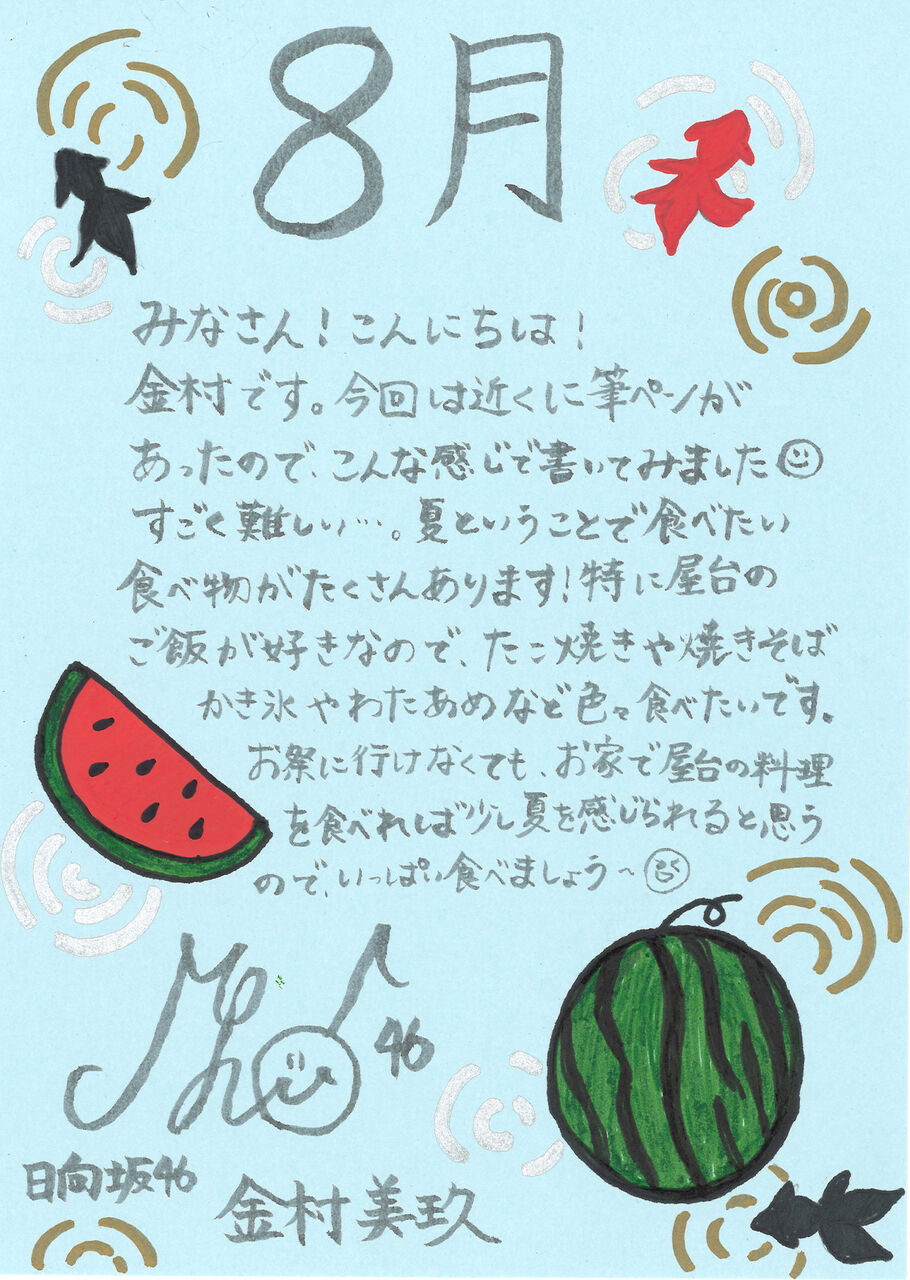 8月
みなさん！こんにちは！
金村です。今回は近くに筆ペンが
あったので、こんな感じで書いてみました
すごく難しい…。夏ということで食べたい
食べ物がたくさんあります！特に屋台の
ご飯が好きなので、たこ焼きや焼きそば
かき氷やわたあめなど色々食べたいです。
お祭に行けなくても、お家で屋台の料理
を食べれば少し夏を感じられると思う
ので、いっぱい食べましょう～
46
日向坂46
金村美玖